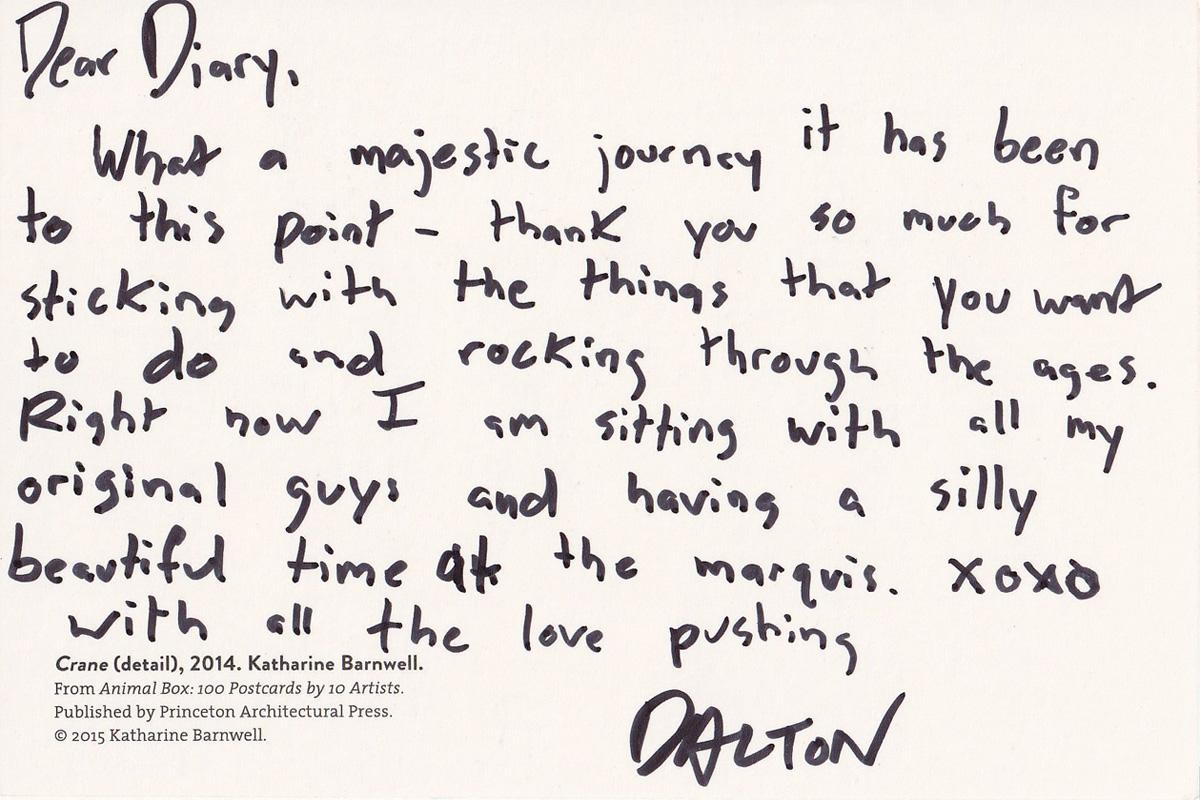 Dear Diary,
What a majestic journey it has been
to this point - thank you so much for
sticking with the things that you want
to do and rocking through the ages.
Right now I am sitting with all my
original guys and having a silly
beautiful time at the marquis. xoxo
with all the love pushing
Crane (detail), 2014. Katharine Barnwell.
From Animal Box: 100 Postcards by 10 Artists.
Published by Princeton Architectural Press.
© 2015 Katharine Barnwell.
DALTON